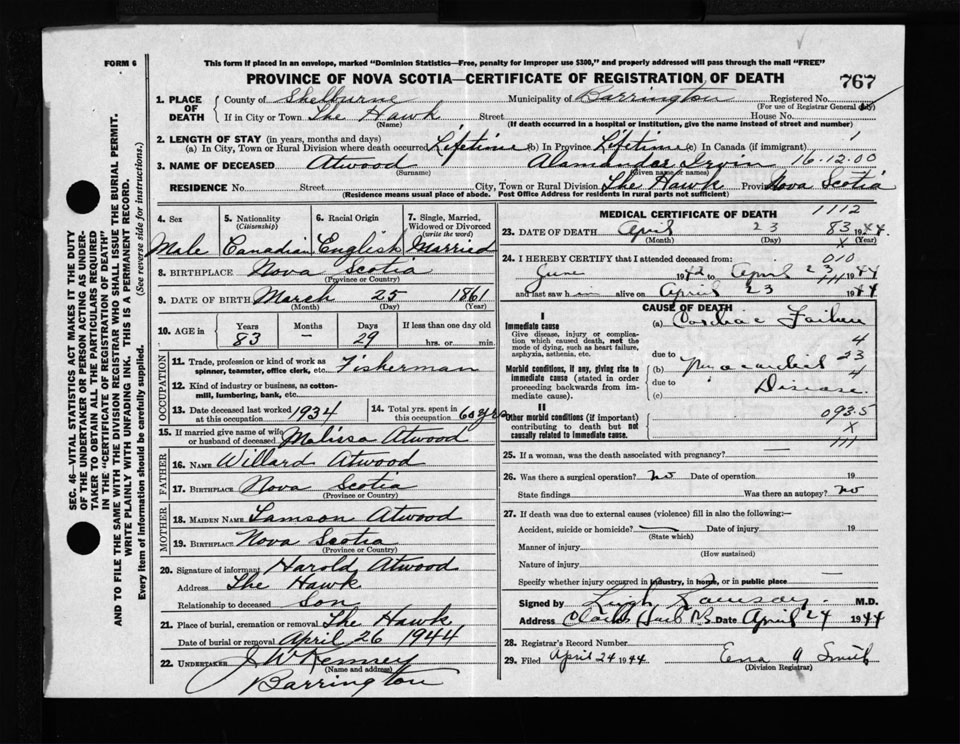 FORM 6
This form if placed in an envelope, marked "Dominion Statistics—Free, penalty for improper use $300," and properly addressed will pass through the mail "FREE"
PROVINCE OF NOVA SCOTIA—CERTIFICATE OF REGISTRATION OF DEATH
767
1. PLACE OF DEATH { County of Shelburne Municipality of Barrington Registered No.
(For use of Registrar General only)
If in City or Town The Hawk Street House No.
(Name) (If death occurred in a hospital or institution, give the name instead of street and number)
2. LENGTH OF STAY (in years, months and days)
(a) In City, Town or Rural Division where death occurred Lifetime (b) In Province Lifetime (c) In Canada (if immigrant)
3. NAME OF DECEASED Atwood Alamander Irvin 16.12.00
(Surname) (Given name or names)
RESIDENCE No. Street City, Town or Rural Division The Hawk Province Nova Scotia
(Residence means usual place of abode. Post Office Address for residents in rural parts not sufficient)
4. Sex
Male
5. Nationality
(Citizenship)
Canadian
6. Racial Origin
English
7. Single, Married, Widowed or Divorced
(write the word)
Married
8. BIRTHPLACE Nova Scotia
(Province or Country)
9. DATE OF BIRTH March 25 1861
(Month) (Day) (Year)
10. AGE in Years Months Days If less than one day old
83 — 29 hrs. or min.
OCCUPATION
11. Trade, profession or kind of work as
spinner, teamster, office clerk, etc. Fisherman
12. Kind of industry or business, as cotton-
mill, lumbering, bank, etc.
13. Date deceased last worked
at this occupation 1934
14. Total yrs. spent in
this occupation 60 yrs
15. If married give name of wife
or husband of deceased Malissa Atwood
FATHER
16. NAME Willard Atwood
17. BIRTHPLACE Nova Scotia
(Province or Country)
MOTHER
18. MAIDEN NAME Tamson Atwood
19. BIRTHPLACE Nova Scotia
(Province or Country)
20. Signature of informant Harold Atwood
Address The Hawk
Relationship to deceased Son
21. Place of burial, cremation or removal The Hawk
Date of burial or removal April 26 1944
22. UNDERTAKER J W Kenney
(Name and address)
Barrington
MEDICAL CERTIFICATE OF DEATH 1112
23. DATE OF DEATH April 23 83 1944
(Month) (Day) X (Year)
24. I HEREBY CERTIFY that I attended deceased from: 010
June 1942 to April 23 1944
111
and last saw him alive on April 23 1944
CAUSE OF DEATH
I
Immediate cause
Give disease, injury or complication which caused death, not the mode of dying, such as heart failure, asphyxia, asthenia, etc.
(a) Cardiac Failure
4
due to
23
Morbid conditions, if any, giving rise to immediate cause (stated in order proceeding backwards from immediate cause).
(b) Myocardial
4
due to
(c) Disease
II
Other morbid conditions (if important) contributing to death but not causally related to immediate cause.
093.5
X
111
25. If a woman, was the death associated with pregnancy? —
26. Was there a surgical operation? No Date of operation 19
State findings Was there an autopsy? No
27. If death was due to external causes (violence) fill in also the following:—
Accident, suicide or homicide? — Date of injury 19
(State which)
Manner of injury
(How sustained)
Nature of injury
Specify whether injury occurred in industry, in home, or in public place —
Signed by Leigh Ramsay M.D.
Address Clarks Harb NS Date April 24 1944
28. Registrar's Record Number
29. Filed April 24 1944 Ena A Smith
(Division Registrar)
SEC. 46—VITAL STATISTICS ACT MAKES IT THE DUTY
OF THE UNDERTAKER OR PERSON ACTING AS UNDER-
TAKER TO OBTAIN ALL THE PARTICULARS REQUIRED
IN THE "CERTIFICATE OF REGISTRATION OF DEATH"
AND TO FILE THE SAME WITH THE DIVISION REGISTRAR WHO SHALL ISSUE THE BURIAL PERMIT.
WRITE PLAINLY WITH UNFADING INK. THIS IS A PERMANENT RECORD.
Every item of information should be carefully supplied. (See reverse side for instructions.)